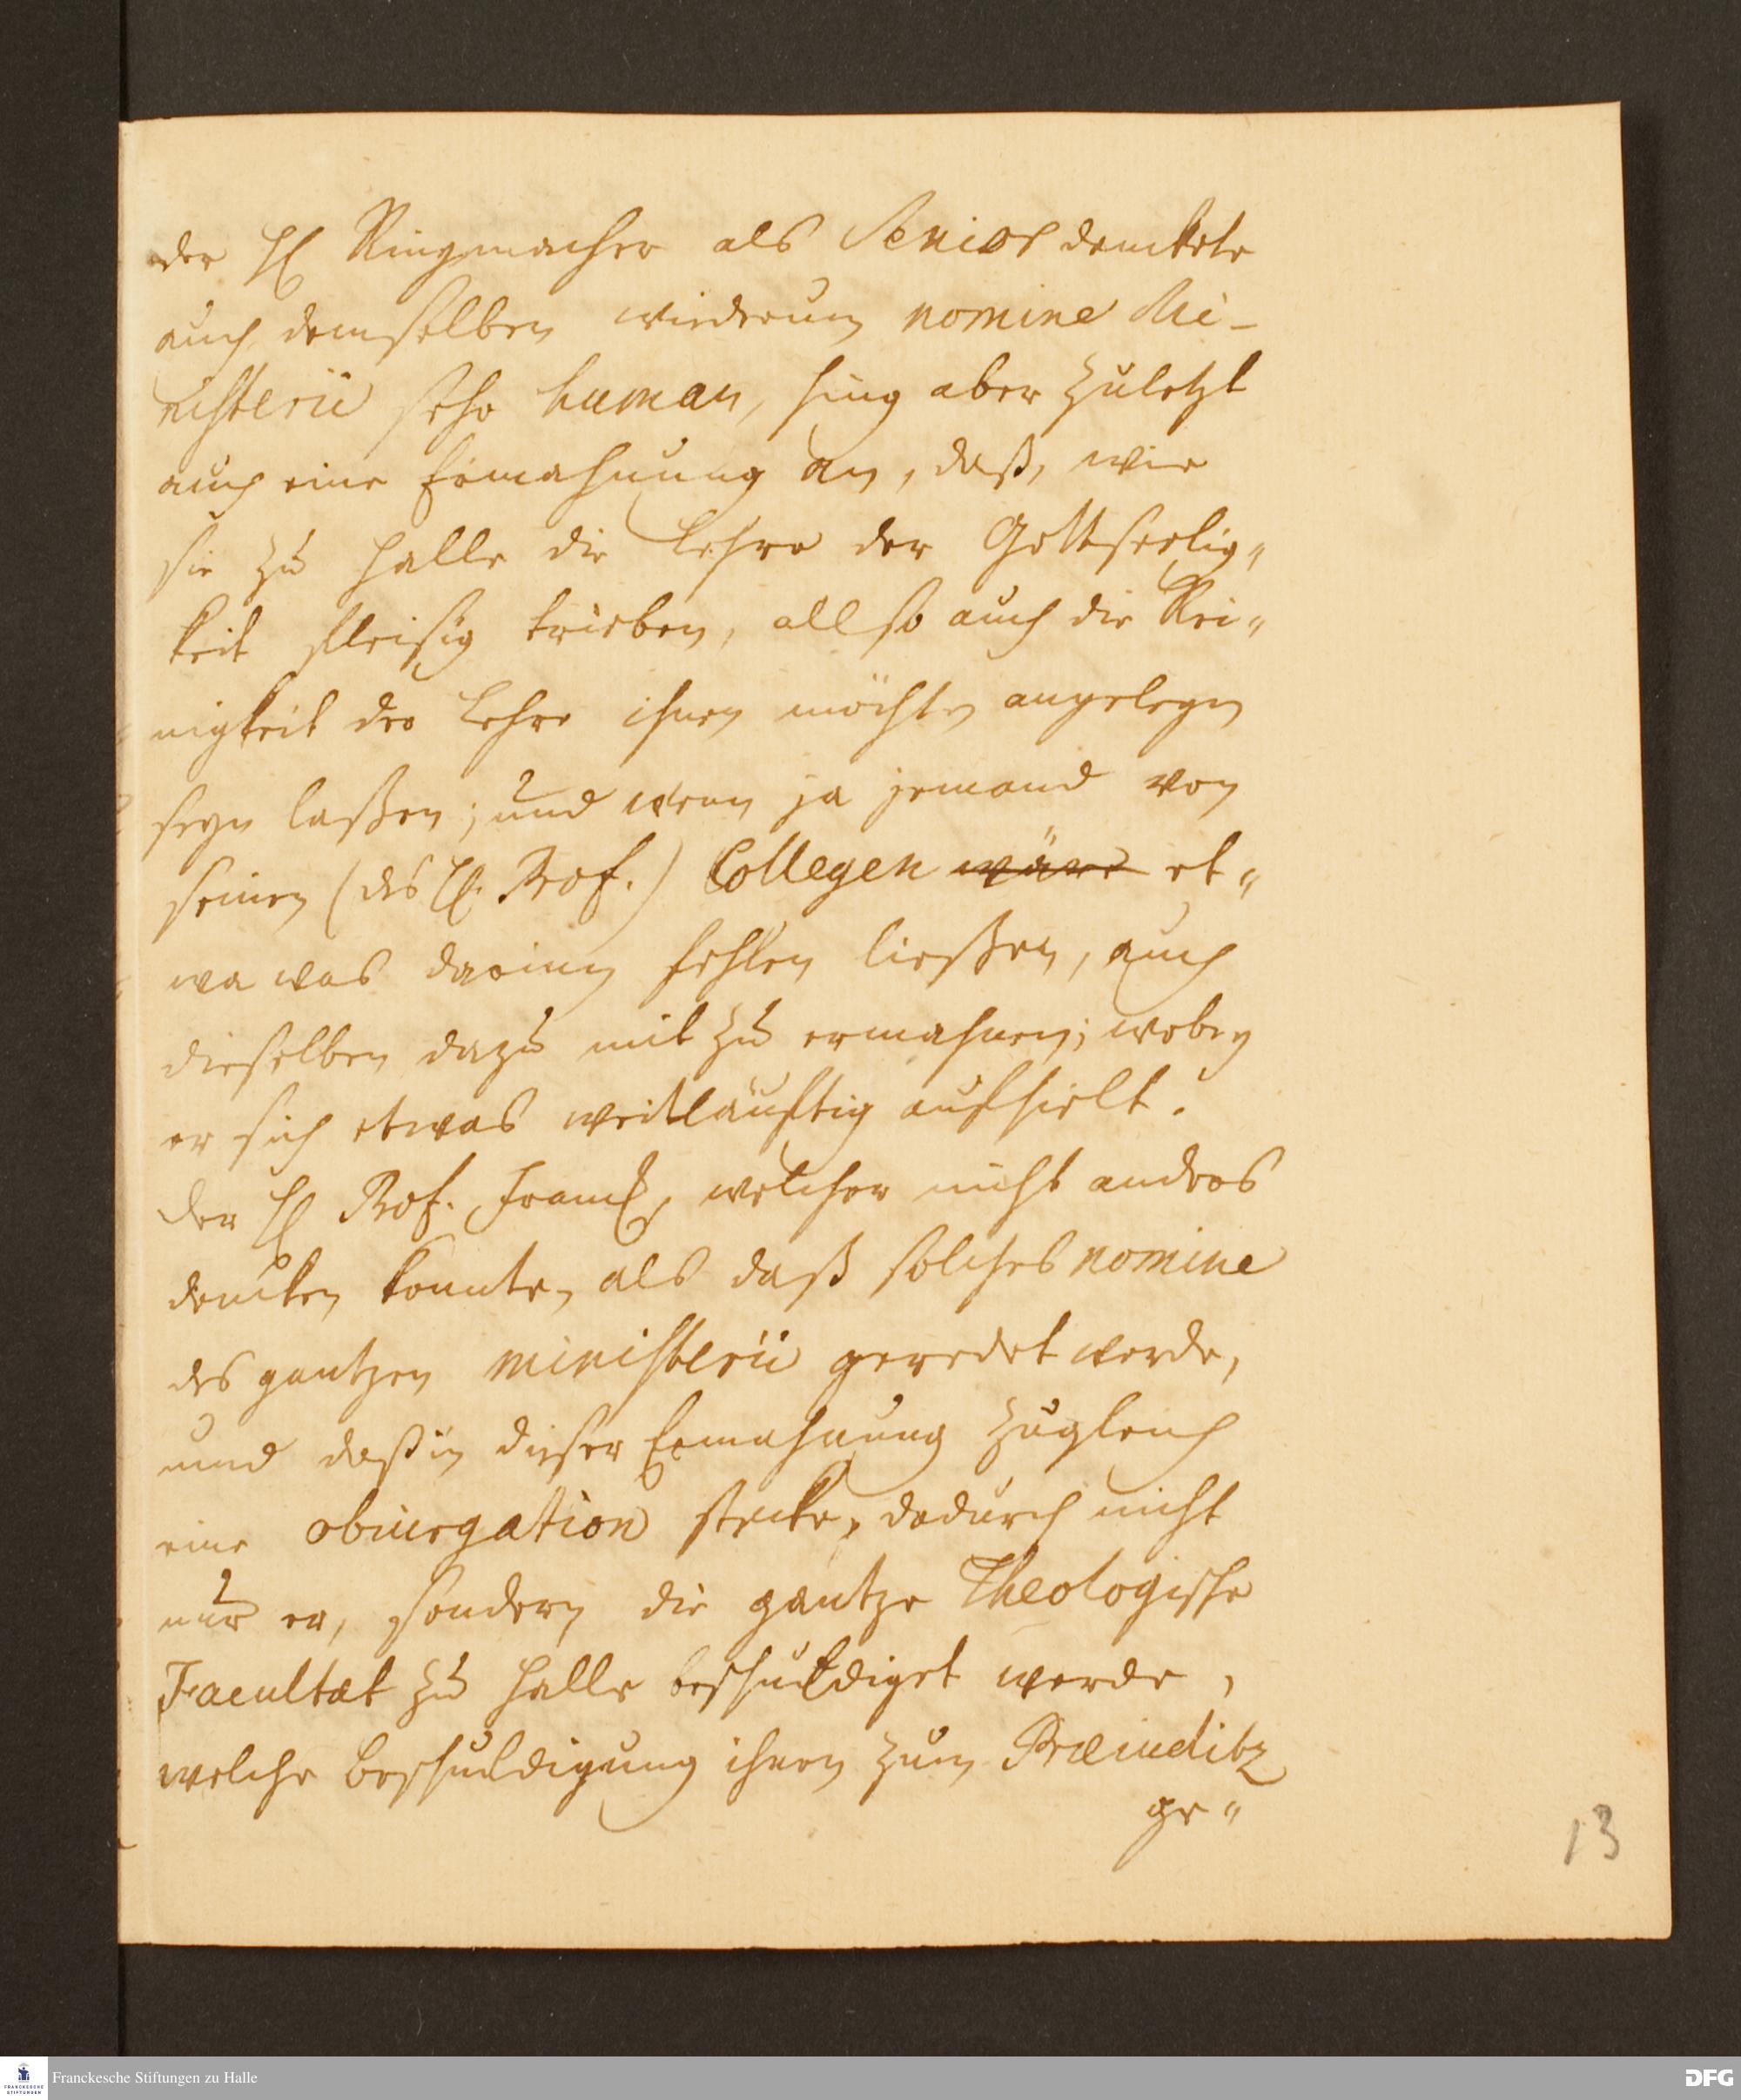 der H Ringmacher als Senior danckete
auch demselben wiederum nomine Mi-
nisterii sehr human, hing aber zuletzt
auch eine Ermahnung an, daß, wie
sie zu Halle die Lehre der Gottseelig„
keit fleisig trieben, allso auch die Rei„
nigkeit der Lehre ihnen möchten angelegen
seyn laßen; und wenn ja jemand von
seinen (des H. Prof.) Collegen wäre et„
wa was darinn fehlen ließen, auch
dieselben dazu mit zu ermahnen; wobey
er sich etwas weitläuftig aufhielt.
Der H Prof. Franck, welcher nicht anders
dencken konnte, als daß solches nomine
des gantzen ministerii geredet werde,
und daß in dieser Ermahnung zugleich
eine obiurgation stecke, dadurch nicht
nur er, sondern die gantze Theologische
Facultæt zu Halle beschuldiget werde,
welche Beschuldigung ihnen zum Præiuditz
ge„
13
Franckesche Stiftungen zu Halle
FRANCKESCHE
STIFTUNGEN
DFG